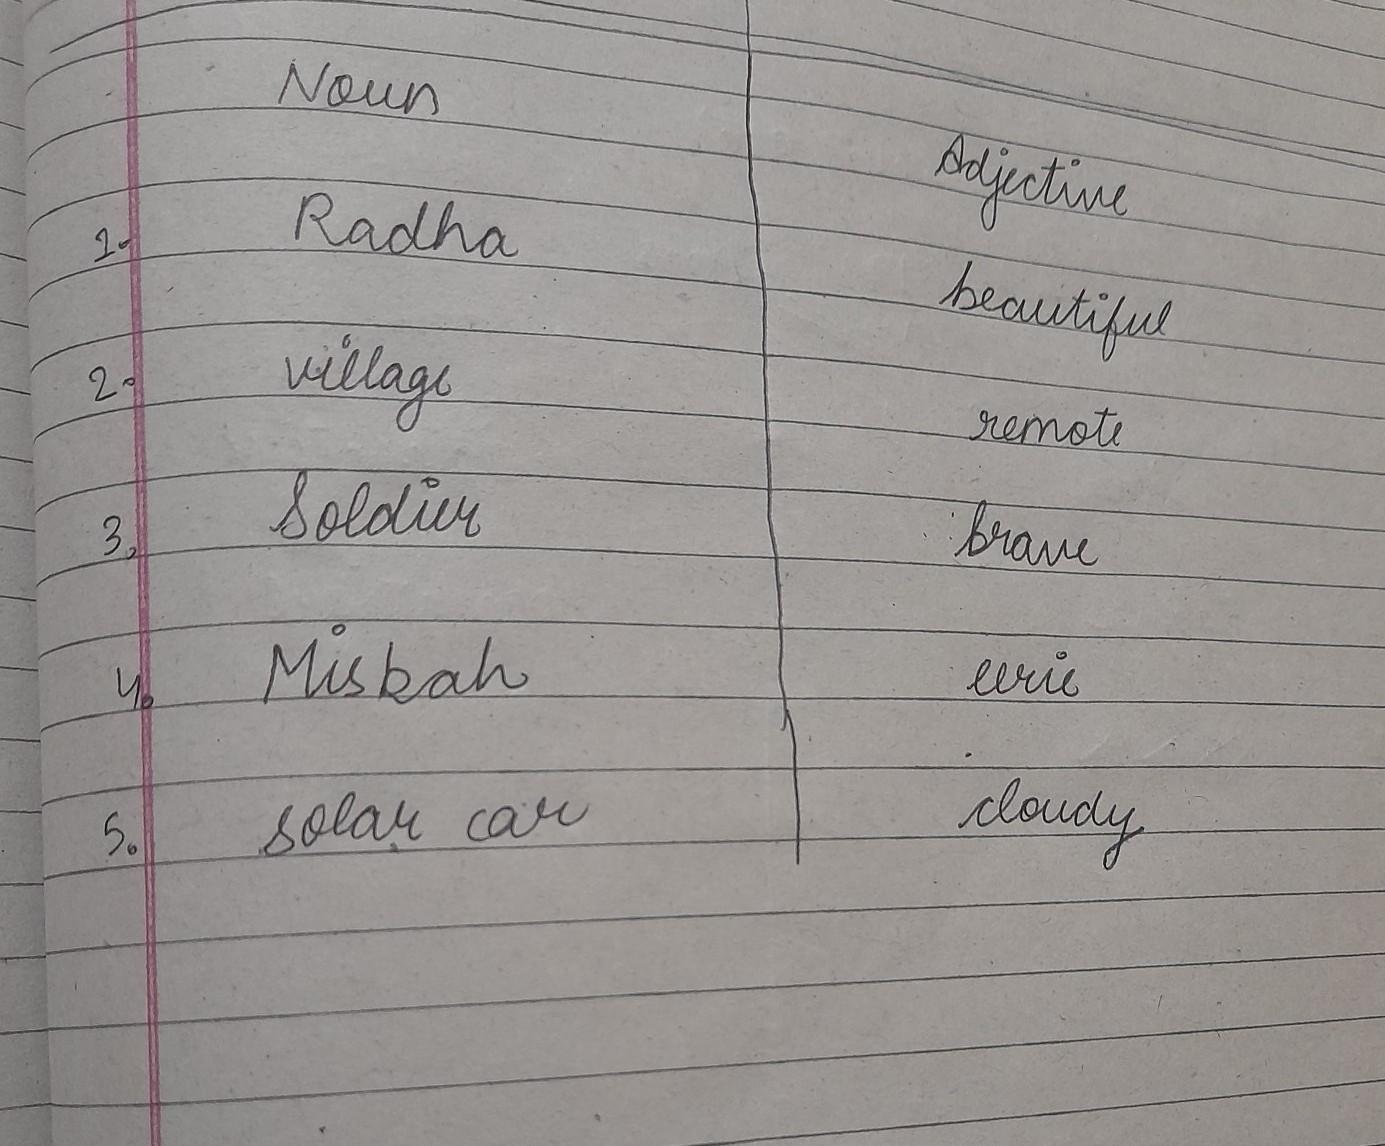 Noun Adjective
1- Radha beautiful
2- village remote
3. Soldier brave
4. Miskah eerie
5. solar car cloudy